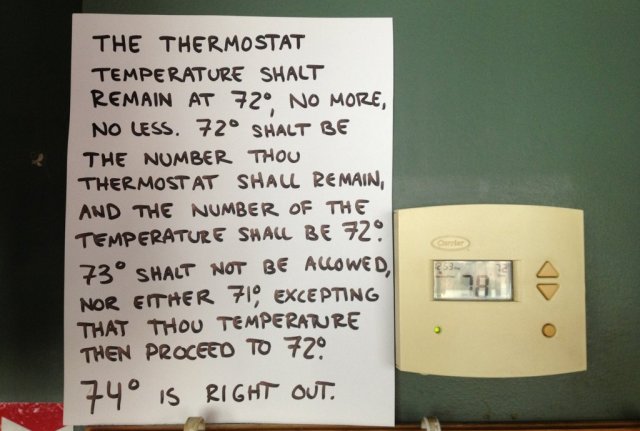 THE THERMOSTAT
TEMPERATURE SHALT
REMAIN AT 72°, NO MORE,
NO LESS. 72° SHALT BE
THE NUMBER THOU
THERMOSTAT SHALL REMAIN,
AND THE NUMBER OF THE
TEMPERATURE SHALL BE 72°.
73° SHALT NOT BE ALLOWED,
NOR EITHER 71°, EXCEPTING
THAT THOU TEMPERATURE
THEN PROCEED TO 72°.
74° IS RIGHT OUT.
Carrier
78